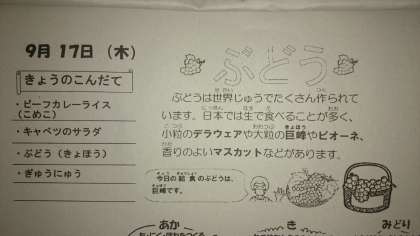 9月 17日 （木）
きょうのこんだて
・ビーフカレーライス
（こめこ）
・キャベツのサラダ
・ぶどう（きょほう）
・ぎゅうにゅう
ぶどう
ぶどうは世界じゅうでたくさん作られて
います。日本では生で食べることが多く、
小粒のデラウェアや大粒の巨峰やピオーネ、
香りのよいマスカットなどがあります。
今日の給食のぶどうは、
巨峰です。
あか
き
みどり